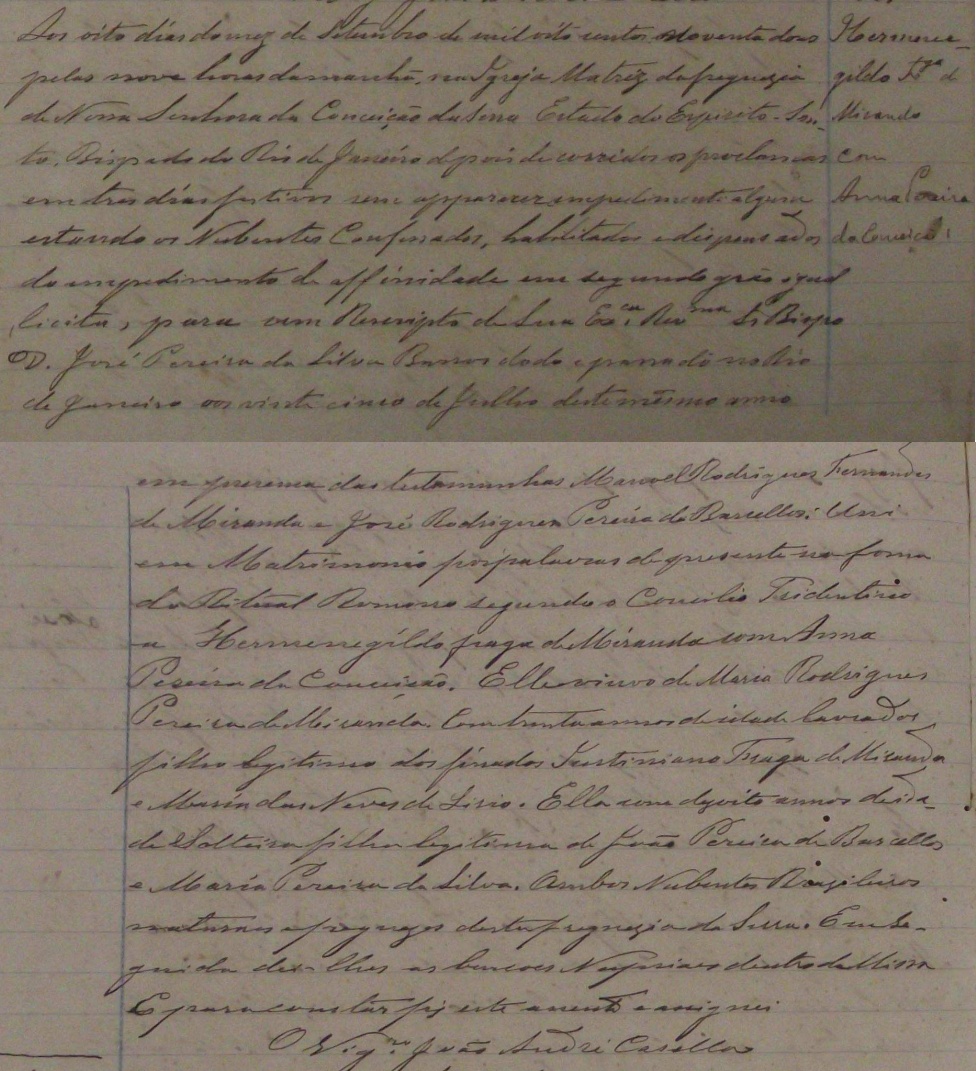 Aos oito dias do mez de Setembro de mil oito centos noventa dous
pelas nove horas da manhã, na Igreja Matriz da freguezia
de Nossa Senhora da Conceição da Serra Estado do Espirito-San-
to, Bispado do Rio de Janeiro depois de corridos os proclamas
em tres dias festivos sem apparecer impedimento algum
estando os Nubentes Confessados, habilitados e dispensados
do impedimento de affinidade em segundo gráo igual
licita, para com Rescripto de Sua Ex.cia Rev.ma Sr. Bispo
D. José Pereira da Silva Barros dado e passado no Rio
de Janeiro aos vinte cinco de Julho deste mesmo anno
Hermene-
gildo F.ga de
Miranda
com
Anna Pereira
da Conceição
em presença das testamunhas Manoel Rodrigues Fernandes
de Miranda e José Rodrigues Pereira de Barcellos: Uni
em Matrimonio por palavras de presente na forma
do Ritual Romano segundo o Concilio Tridentino
a Hermenegildo fraga de Miranda com Anna
Pereira da Conceição. Elle viuvo de Maria Rodrigues
Pereira de Miranda. Com trinta annos de idade lavrador,
filho legitimo dos finados Justiniano Fraga de Miranda
e Maria das Neves de Lirio. Ella com dezoito annos de ida-
de Solteira filha legitima de João Pereira de Barcellos
e Maria Pereira da Silva. Ambos Nubentes Brazileiros
naturaes e freguezes desta freguezia da Serra. Em Se-
guida dei-lhes as bençoes Nupciaes dentro da Missa
E para constar fiz este assento e assignei
O Vig.ro João André Casella